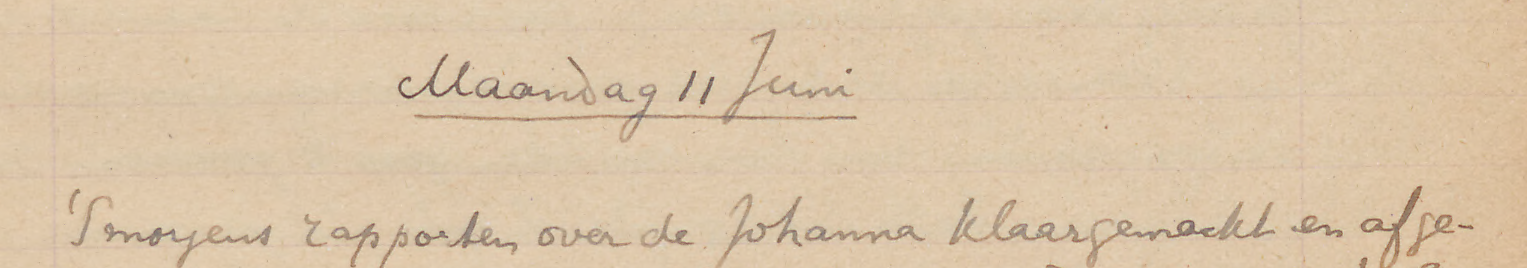 Maandag 11 Juni
'Smorgens rapporten over de Johanna klaargemaakt en afge-